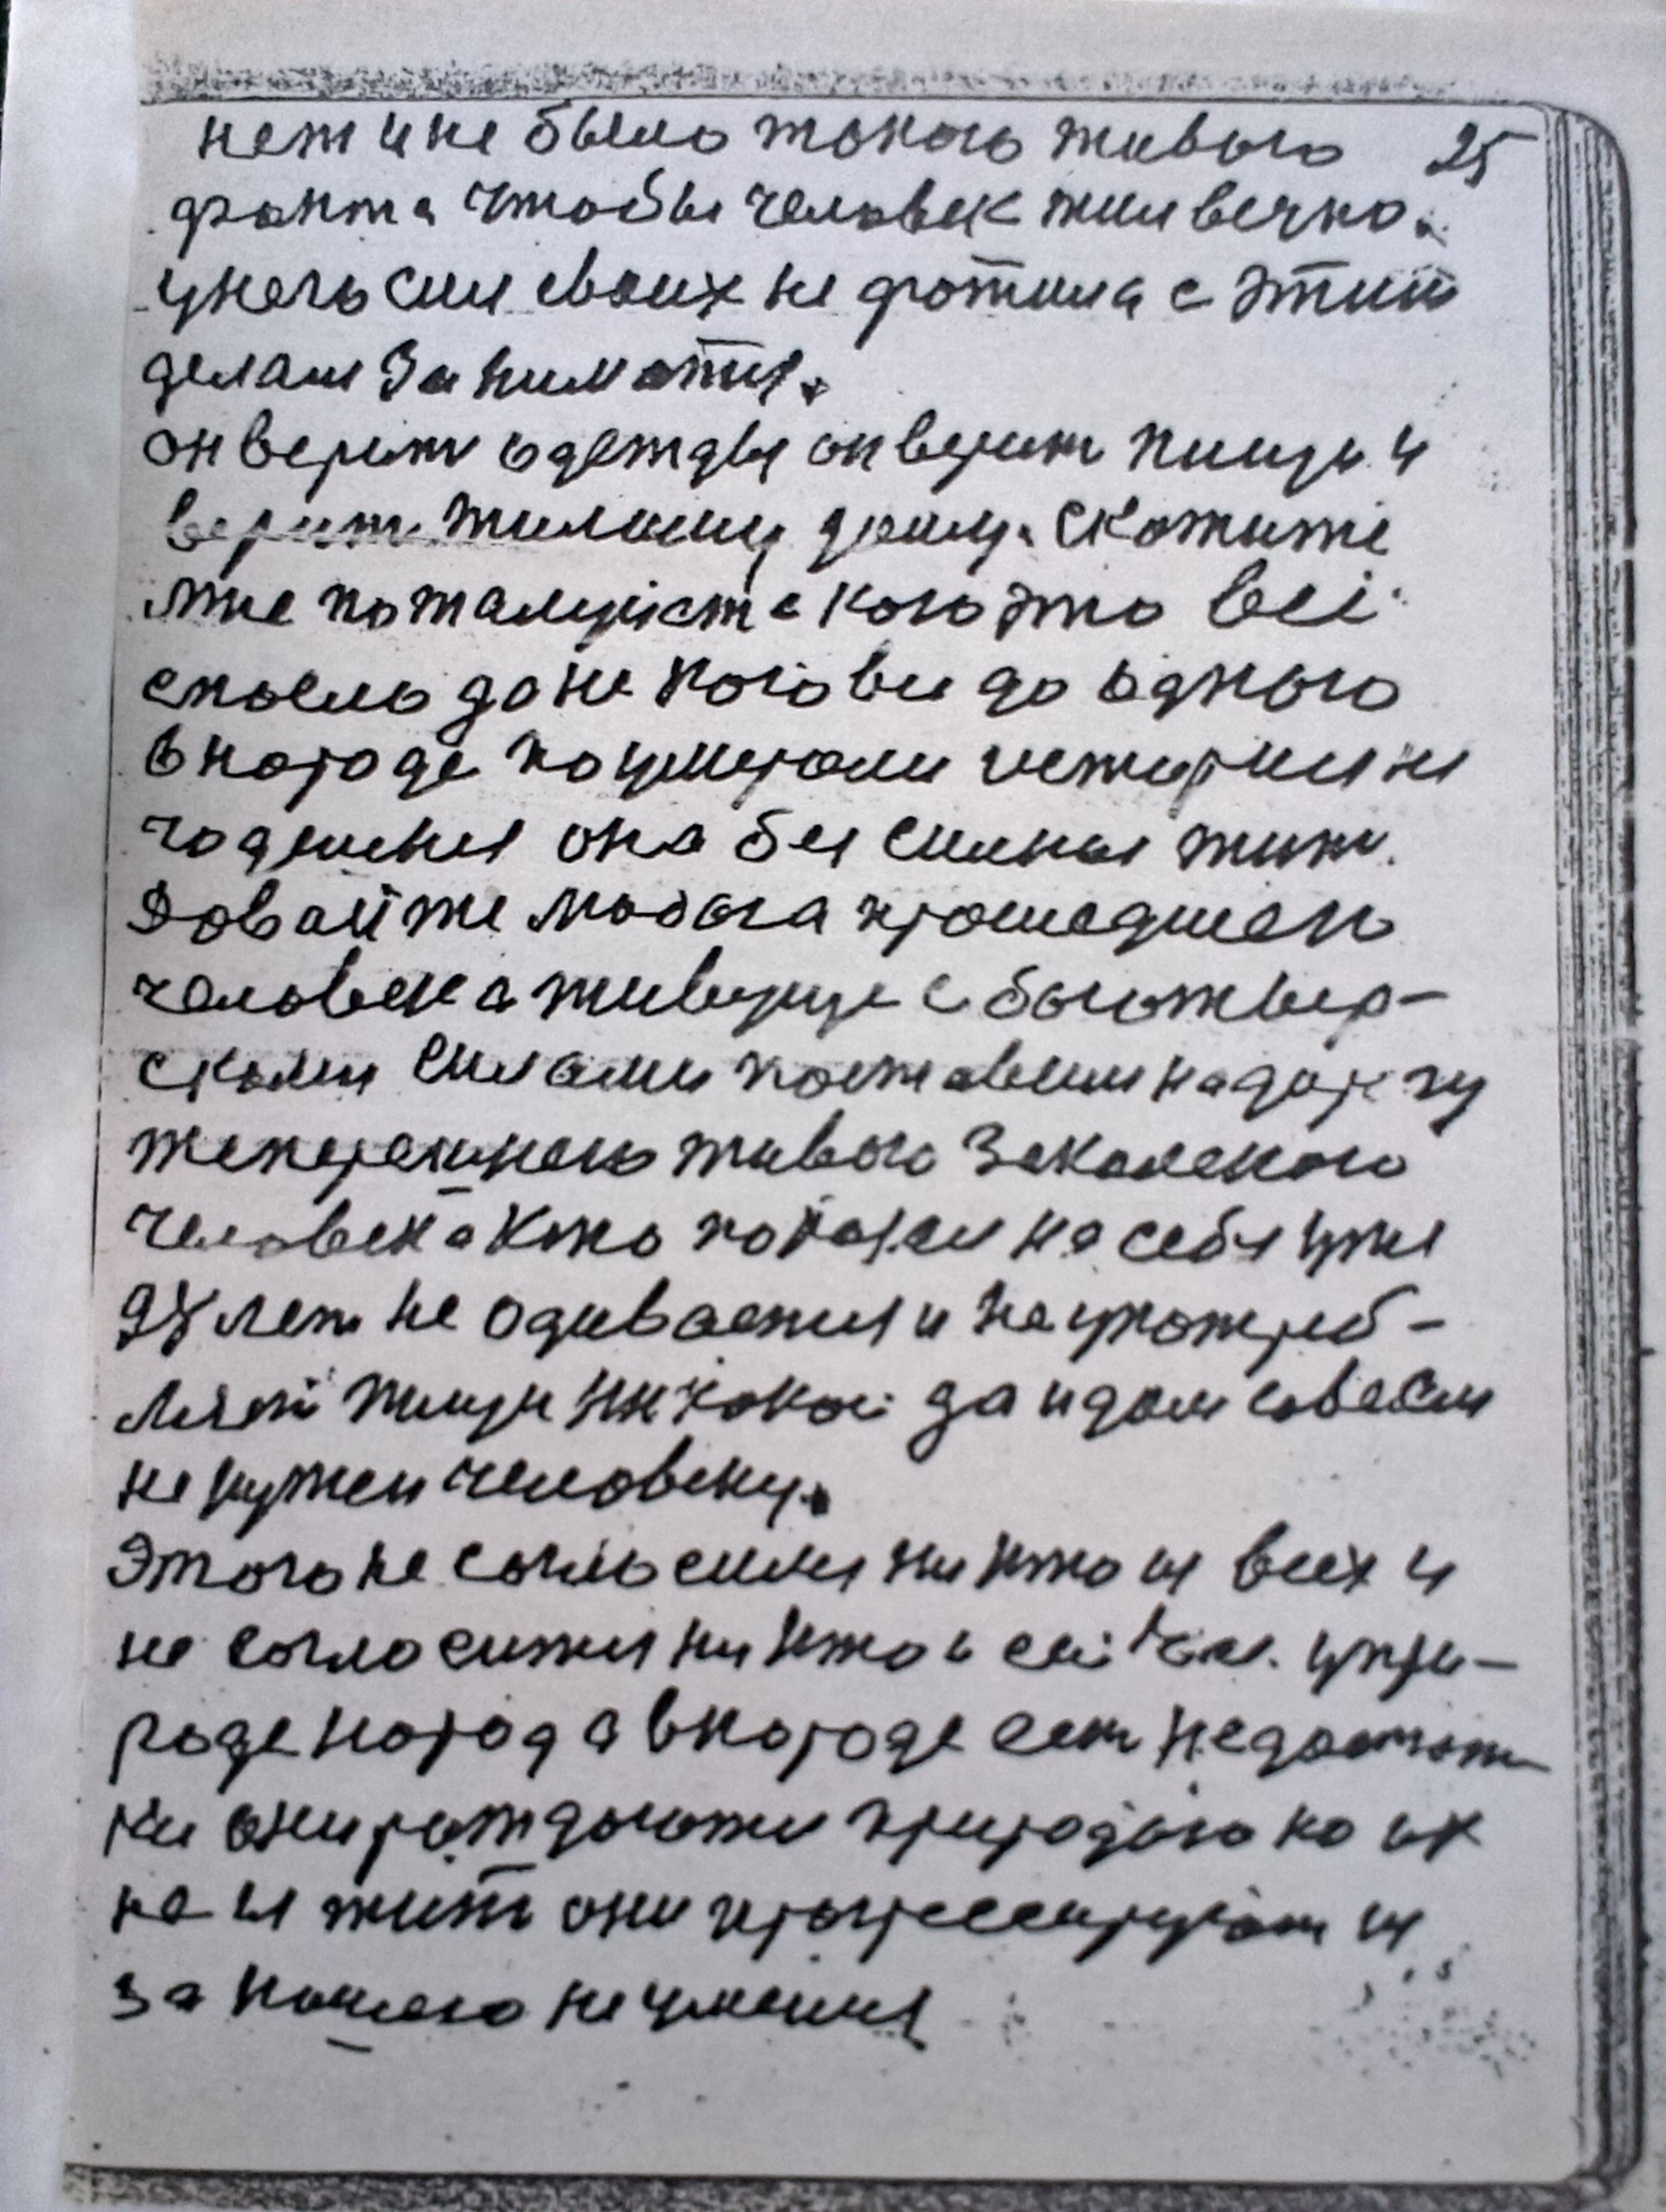 нет и не было такого живого 25
факта чтобы человек жил вечно.
у него сил своих не фатила с этим
делам заниматся.
он верит одежды он верит пищи и
верит жилому дому. скажите
мне пожалуйста кого это всё
спасло да не кого все до одного
в народе поумерали история не
годишня она бессильная жить.
Давайте мы бога прошедшего
человека живущие с боготвор-
скими силами поставим на дорогу
теперешнего живого закаленого
человека кто показал на себя уже
28 лет не одивается и не употреб-
ляет пищи никакой да и дом совсем
не нужен человеку.
Этого не согласился никто из всех и
не согласится никто и сейчас. у при-
роде народ а в народе есть недостат-
ки они рождаются природою но их
не изжить они прогрессируют из
за нашего не умения